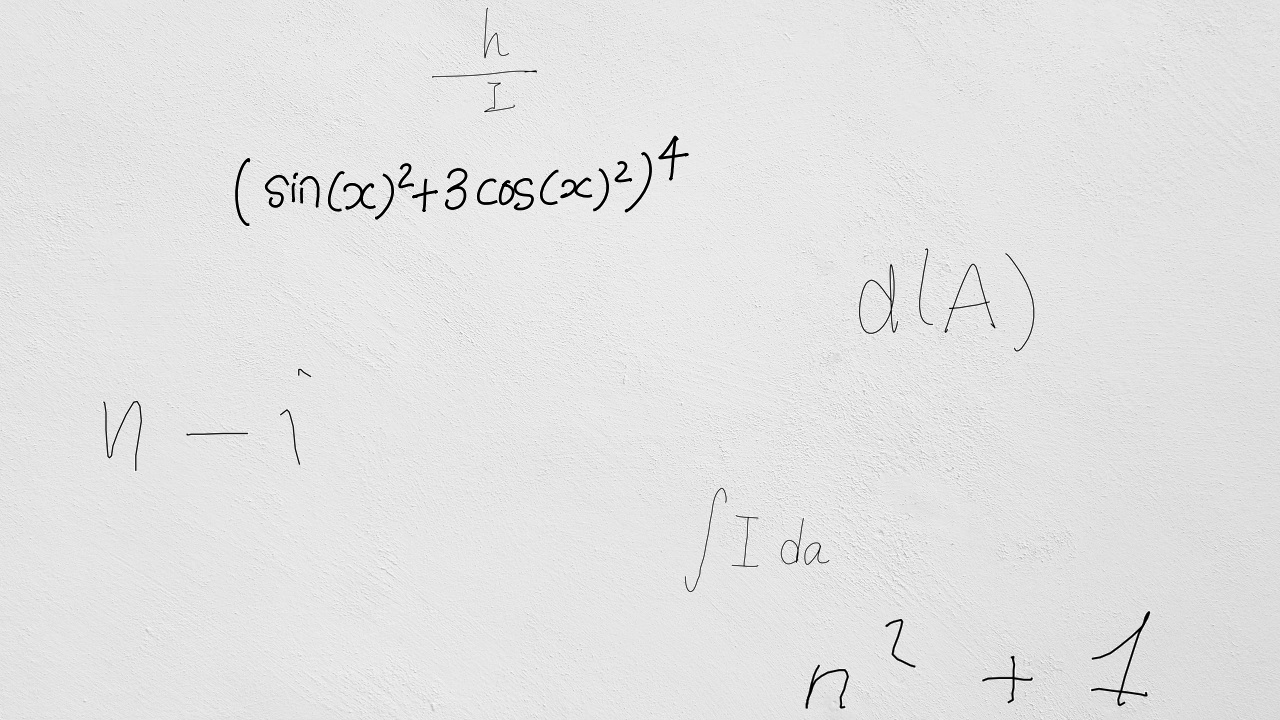 h/I
(sin(x)²+3cos(x)²)⁴
d(A)
n − i
∫I da
n² + 1